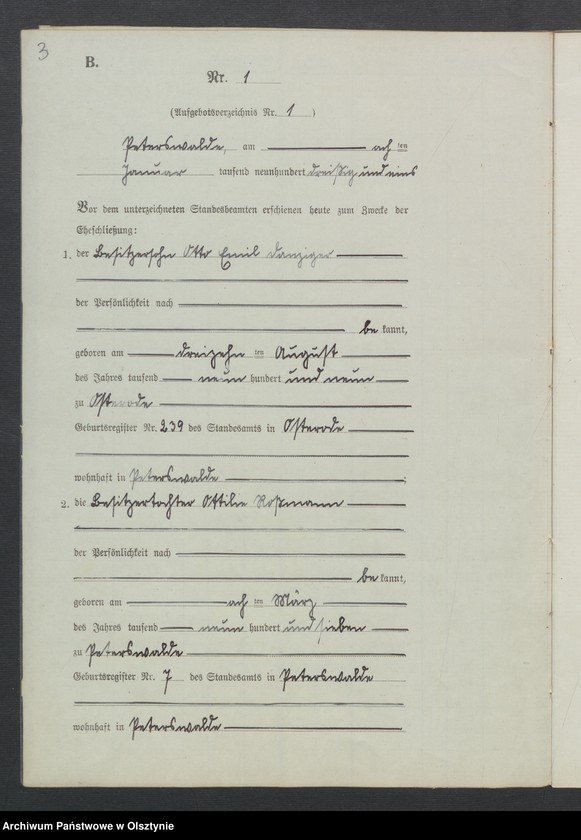 3
B.
Nr. 1
(Aufgebotsverzeichnis Nr. 1)
Peterswalde, am ach ten
Januar tausend neunhundert dreißig und eins
Vor dem unterzeichneten Standesbeamten erschienen heute zum Zwecke der
Eheschließung:
1. der Besitzersohn Otto Emil Danziger
der Persönlichkeit nach
be kannt,
geboren am dreizehn ten August
des Jahres tausend neun hundert und neun
zu Osterode
Geburtsregister Nr. 239 des Standesamts in Osterode
wohnhaft in Peterswalde ;
2. die Besitzertochter Ottilie Roßmann
der Persönlichkeit nach
be kannt,
geboren am ach ten März
des Jahres tausend neun hundert und sieben
zu Peterswalde
Geburtsregister Nr. 7 des Standesamts in Peterswalde
wohnhaft in Peterswalde
Archiwum Państwowe w Olsztynie